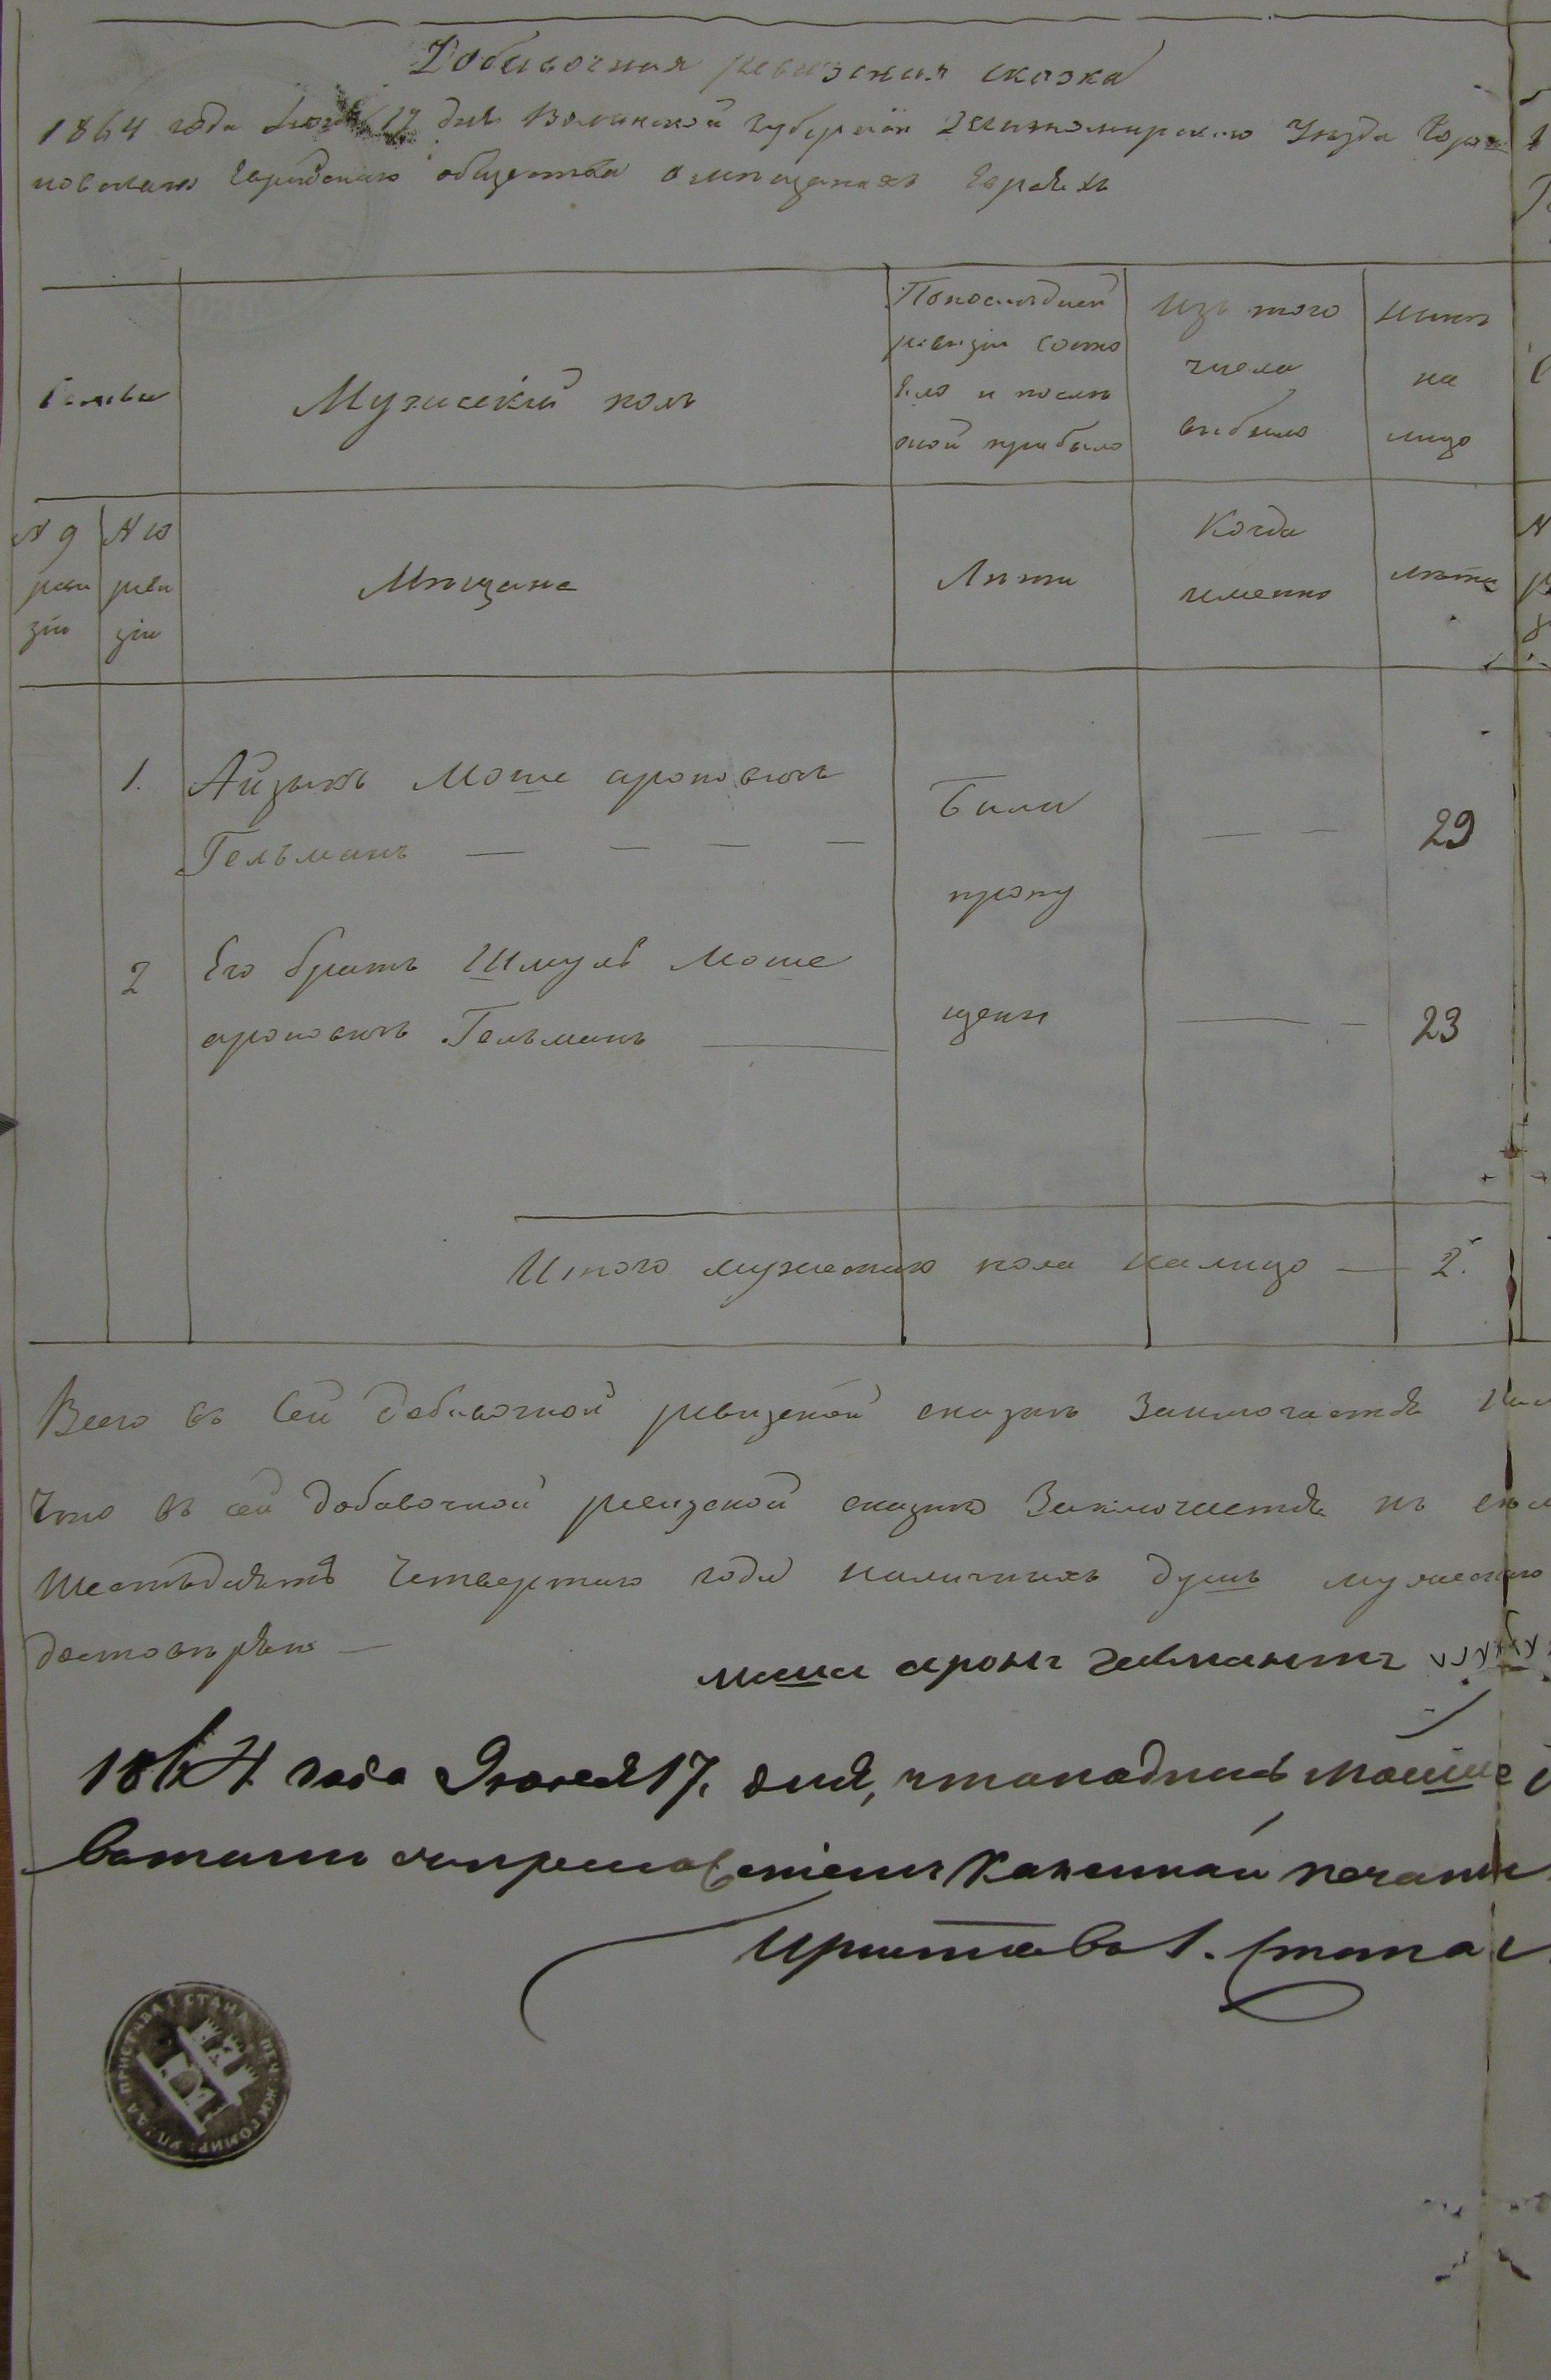 Добавочная ревизская сказка
1864 года 17 дня Волынской Губернии Житомирского Уезда
новского Еврейского общества о мещанахъ Евреяхъ
Мужеский полъ
По последней
ревизіи состо
яло и после
оной прибыло
Изъ того
числа
выбыло
Ныне
на
лицо
№ 9
реви
зіи
№ 10
реви
зіи
Мещане
Лета
Когда
именно
лета
1. Айзыкъ Моше ароновичъ
Гельманъ — — — —
Были
пропу
щены
— —
29
2 Его братъ Шмуль Моше
ароновичъ Гельманъ —
— —
23
Итого мужеского пола налицо — 2.
Всего въ сей добавочной ревизской сказке Заключается
Что въ сей добавочной ревизской сказке Заключается
шестьдесятъ Четвертого года наличныхъ душъ мужеского
моша аронъ гелманъ
1864 года Іюня 17. дня, что подпись Мошие
ваталъ съ приложеніемъ Казенной печати
Приставъ 1. Стана
ПРИСТАВА 1 СТАНА ПЕЧ. ЖИТОМИР. УЕЗДА